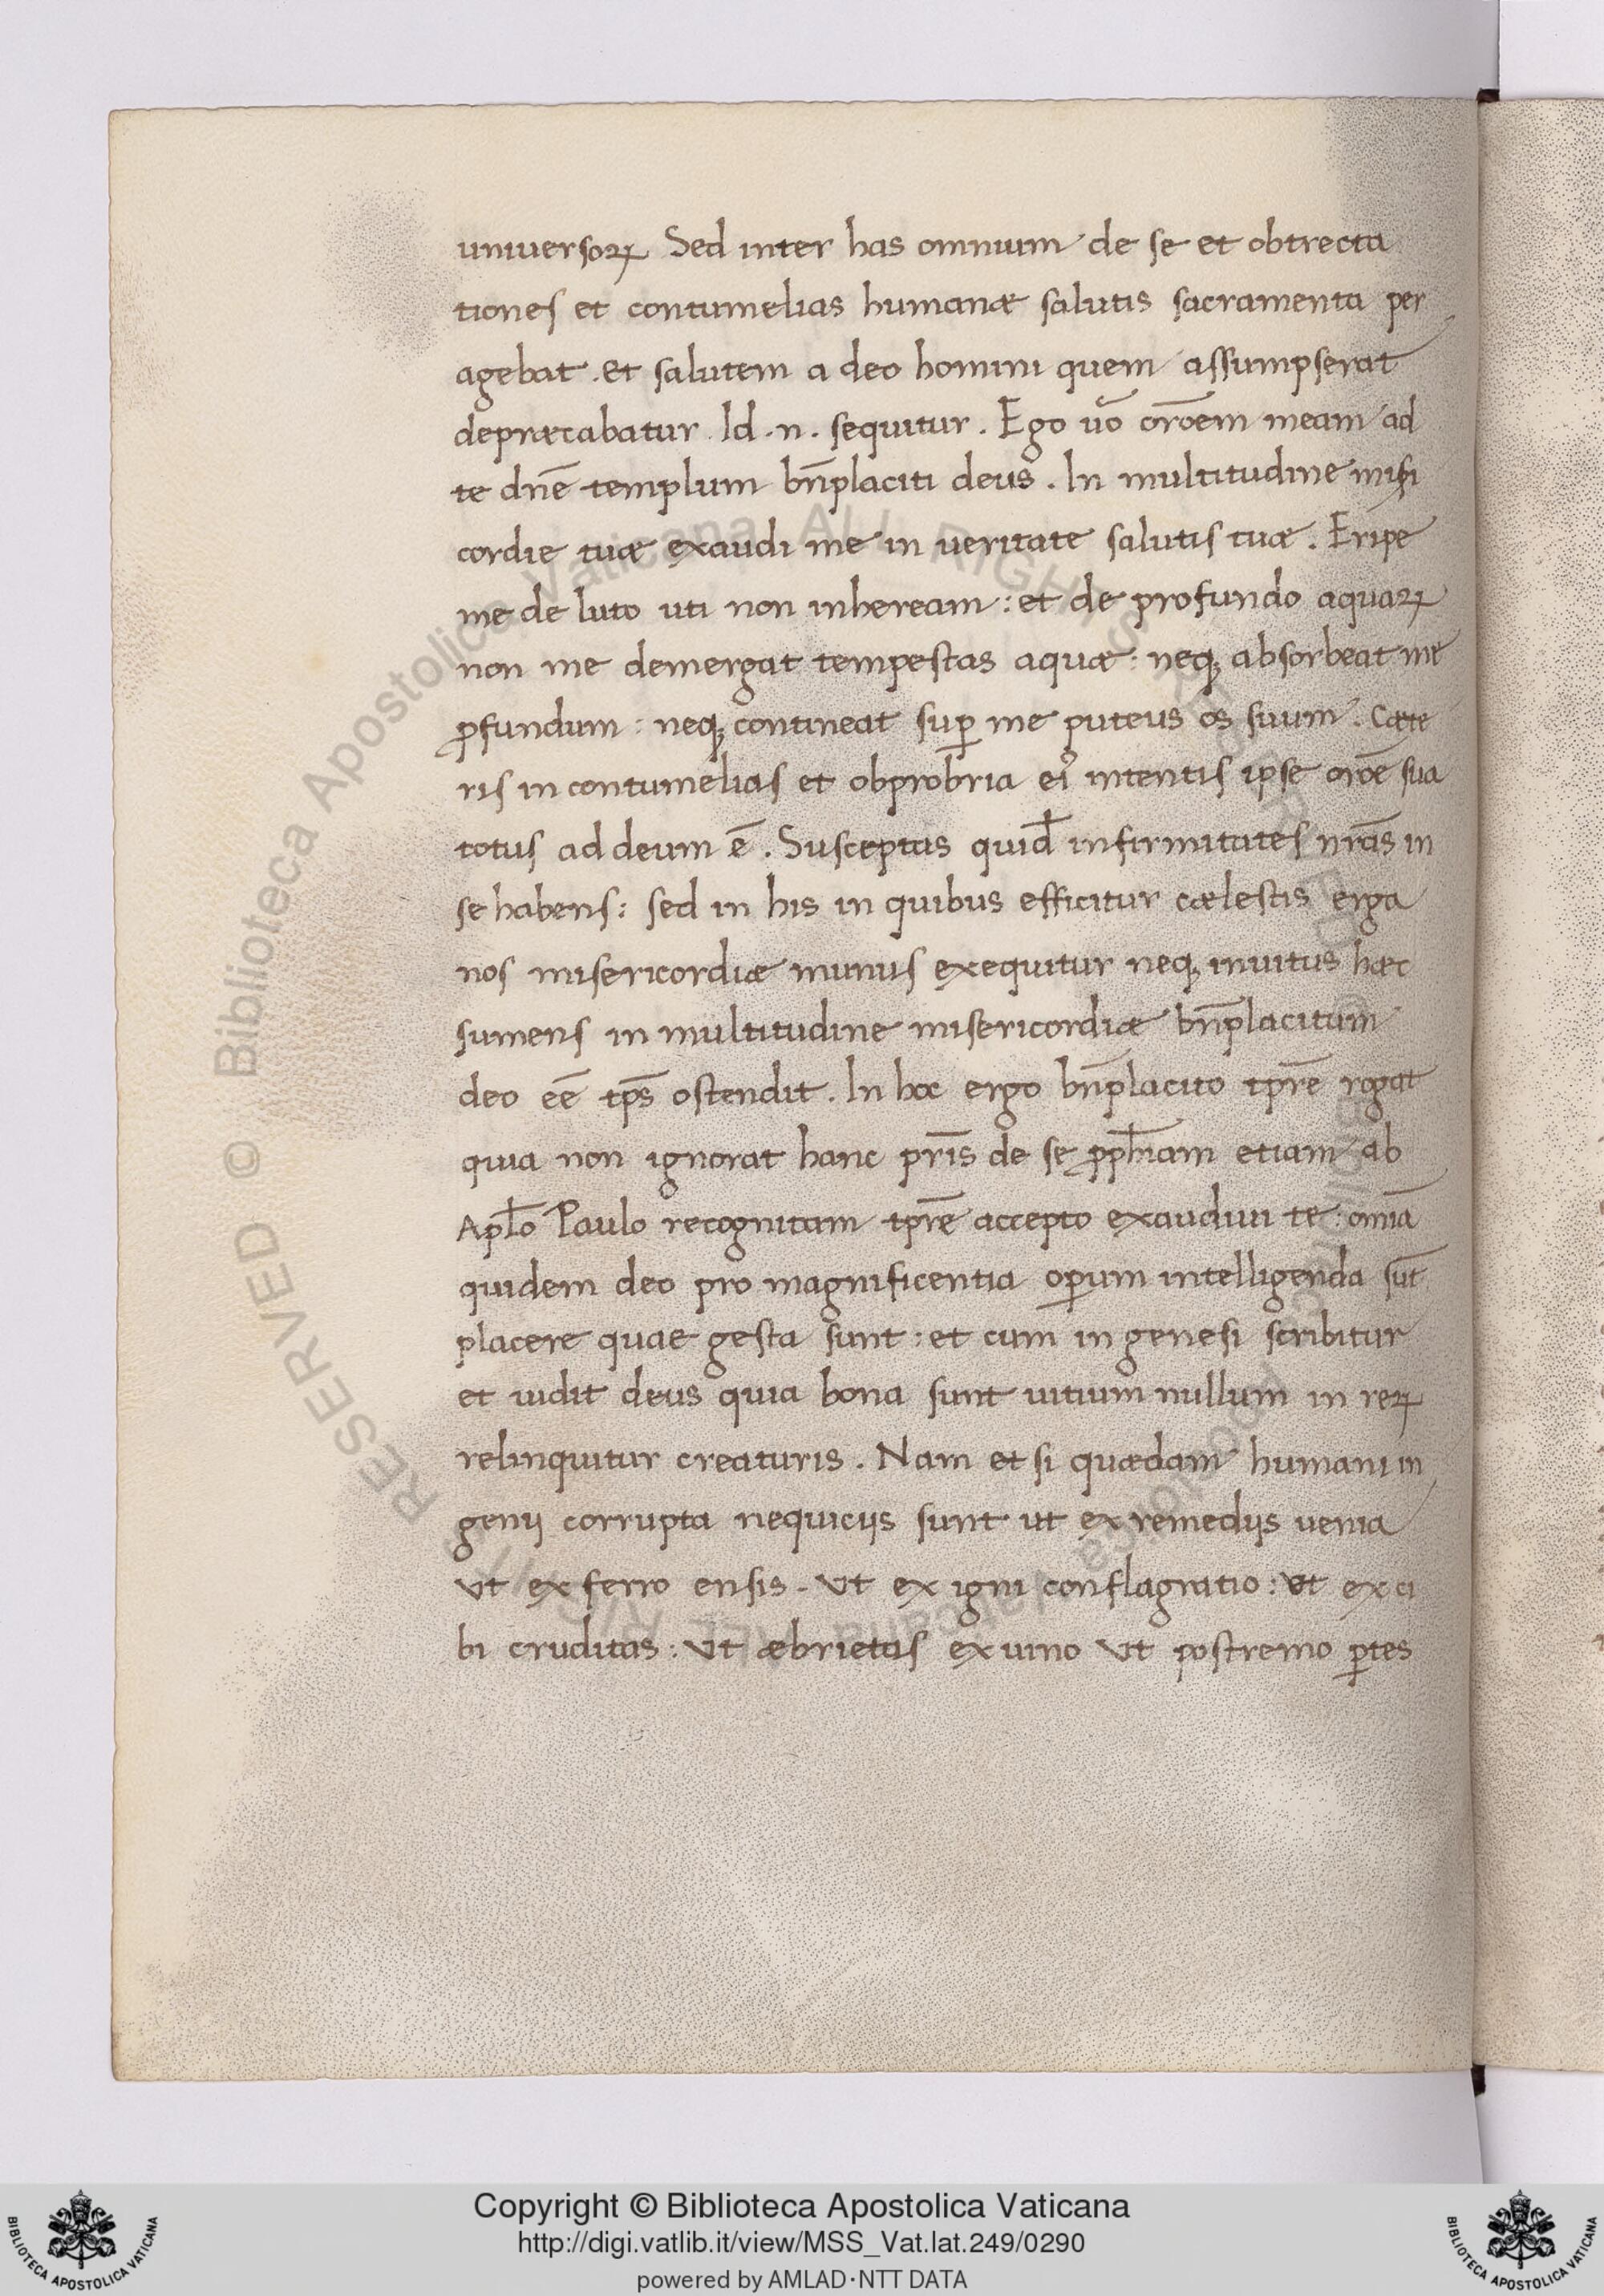 uniuersoꝝ Sed inter has omnium de se et obtrecta
tiones et contumelias humanæ salutis sacramenta per
agebat . et salutem a deo homini quem assumpserat
depræcabatur . Id .n. sequitur . Ego uo᷑ or̄oem meam ad
te dn̄e templum bn̄placiti deus . In multitudine misi
cordie tuæ exaudi me in ueritate salutis tuæ . Eripe
me de luto uti non inheream : et de profundo aquaꝝ
non me demergat tempestas aquæ : neqꝫ absorbeat me
ꝓfundum : neqꝫ contineat suꝑ me puteus os suum . Cæte
ris in contumelias et obprobria eiꝰ intentis ipse oroē sua
totus ad deum ē . Susceptas quid̄ infirmitates nr̄as in
se habens : sed in his in quibus efficitur cælestis erga
nos misericordiæ munus exequitur neqꝫ inuitus hæc
sumens in multitudine misericordiæ bn̄placitum
deo eē tp̄s ostendit . In hoc ergo bn̄placito tp̄re rogat
quia non ignorat hanc pr̄is de se ꝓph̄iam etiam ab
Apl̄o Paulo recognitam tp̄re accepto exaudiui te : omīa
quidem deo pro magnificentia oꝑum intelligenda sūt
placere quae gesta sunt : et cum in genesi scribitur
et uidit deus quia bona sunt uitium nullum in reꝝ
relinquitur creaturis . Nam et si quædam humani in
genij corrupta nequicijs sunt ut ex remedijs uenia
ut ex ferro ensis . ut ex igni conflagratio : ut ex ci
bi cruditas : ut æbrietas ex uino ut postremo ꝑtes
© Biblioteca Apostolica Vaticana ALL RIGHTS RESERVED
Copyright © Biblioteca Apostolica Vaticana
http://digi.vatlib.it/view/MSS_Vat.lat.249/0290
powered by AMLAD·NTT DATA
BIBLIOTECA APOSTOLICA VATICANA
BIBLIOTECA APOSTOLICA VATICANA